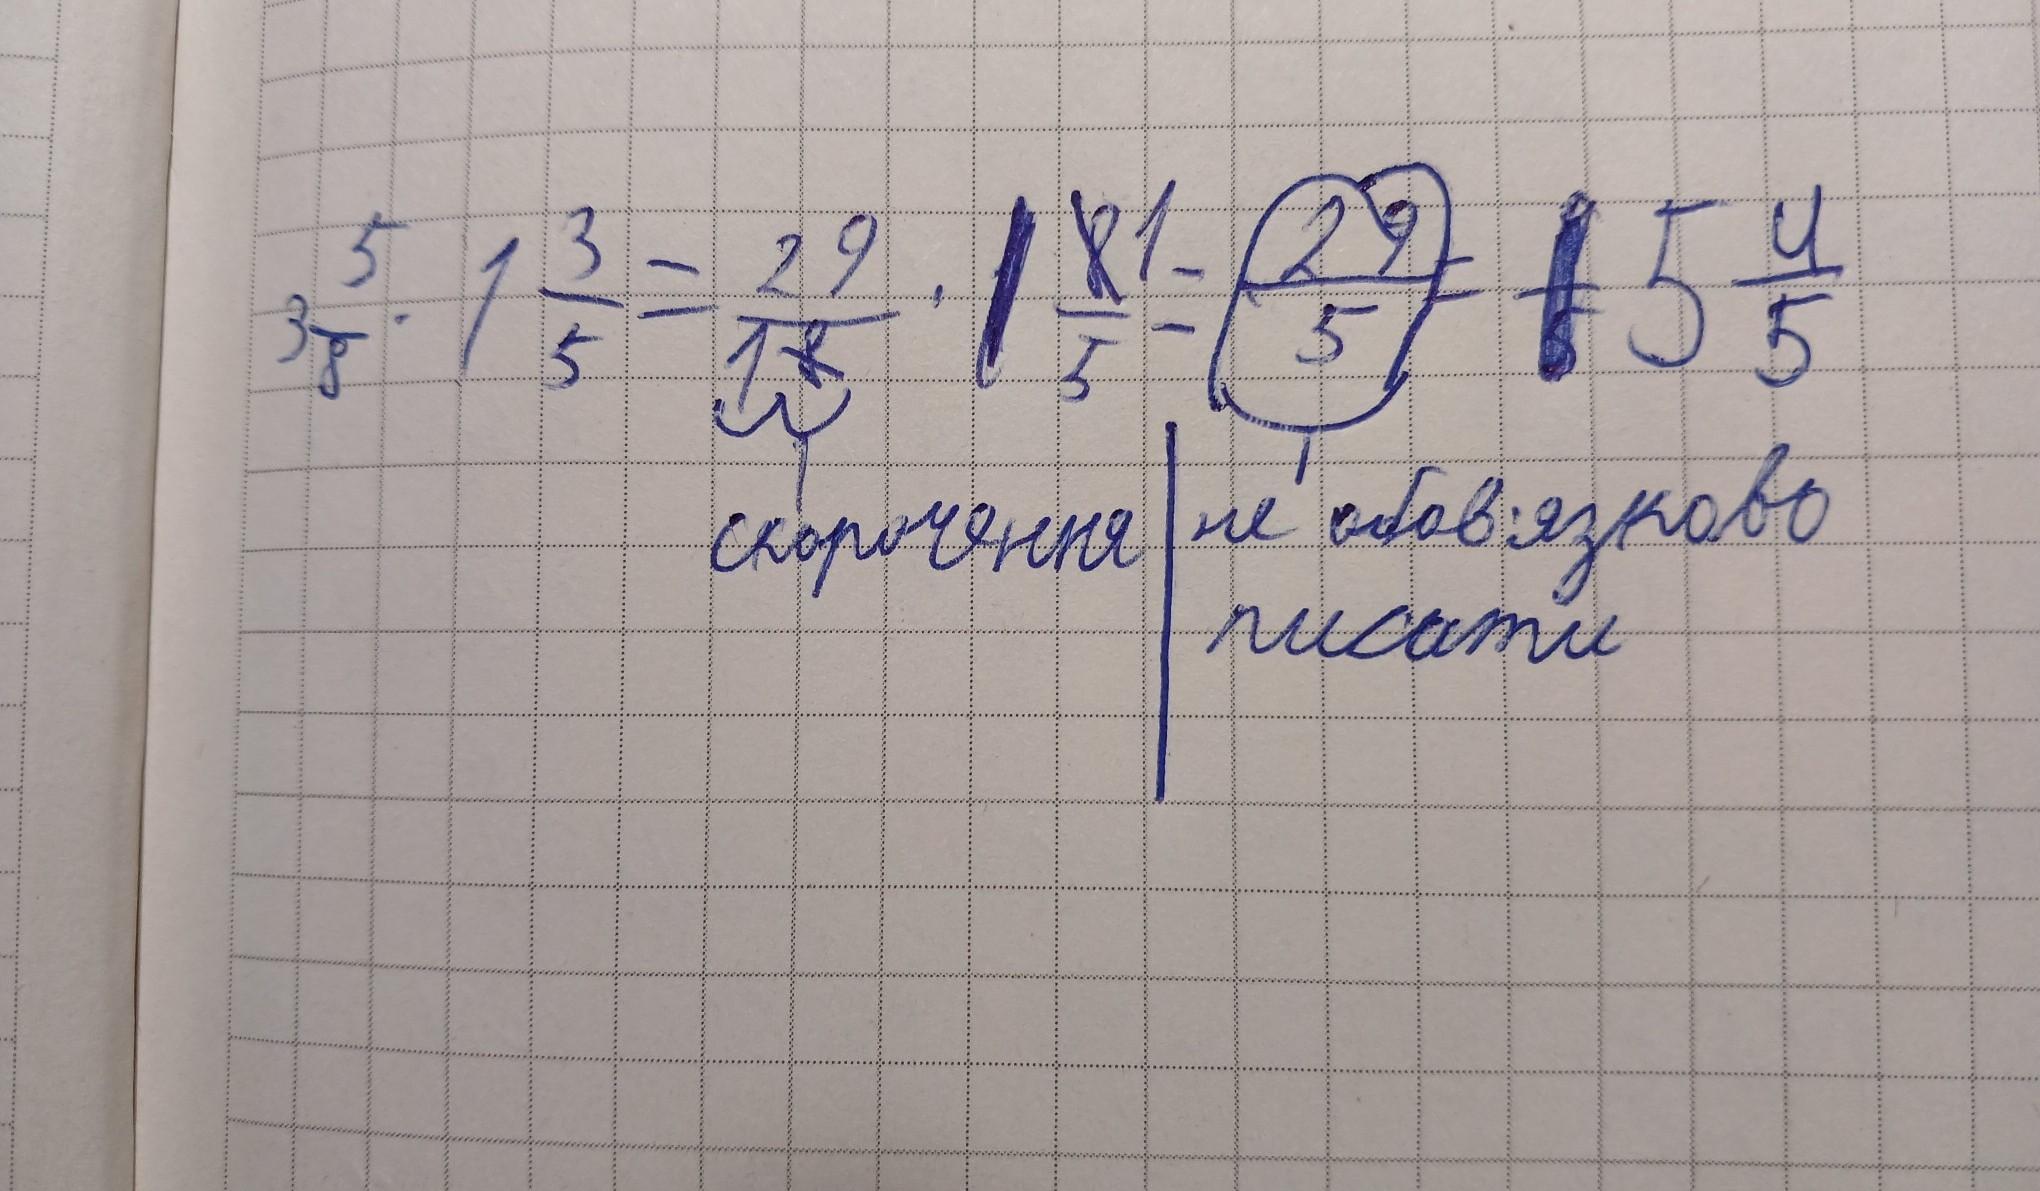 3 5/8 · 1 3/5 = 29/18 · 8 1/5 = 29/5 = 5 4/5
скорочення | не обов'язково
писати